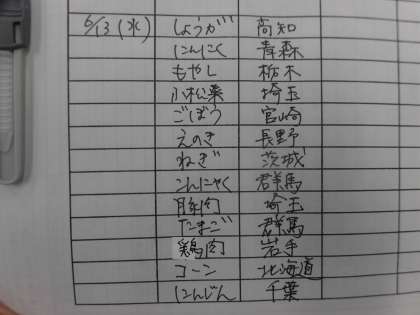 6/13(水) しょうが 高知
にんにく 青森
もやし 栃木
小松菜 埼玉
ごぼう 宮崎
えのき 長野
ねぎ 茨城
こんにゃく 群馬
豚肉 埼玉
たまご 群馬
鶏肉 岩手
コーン 北海道
にんじん 千葉